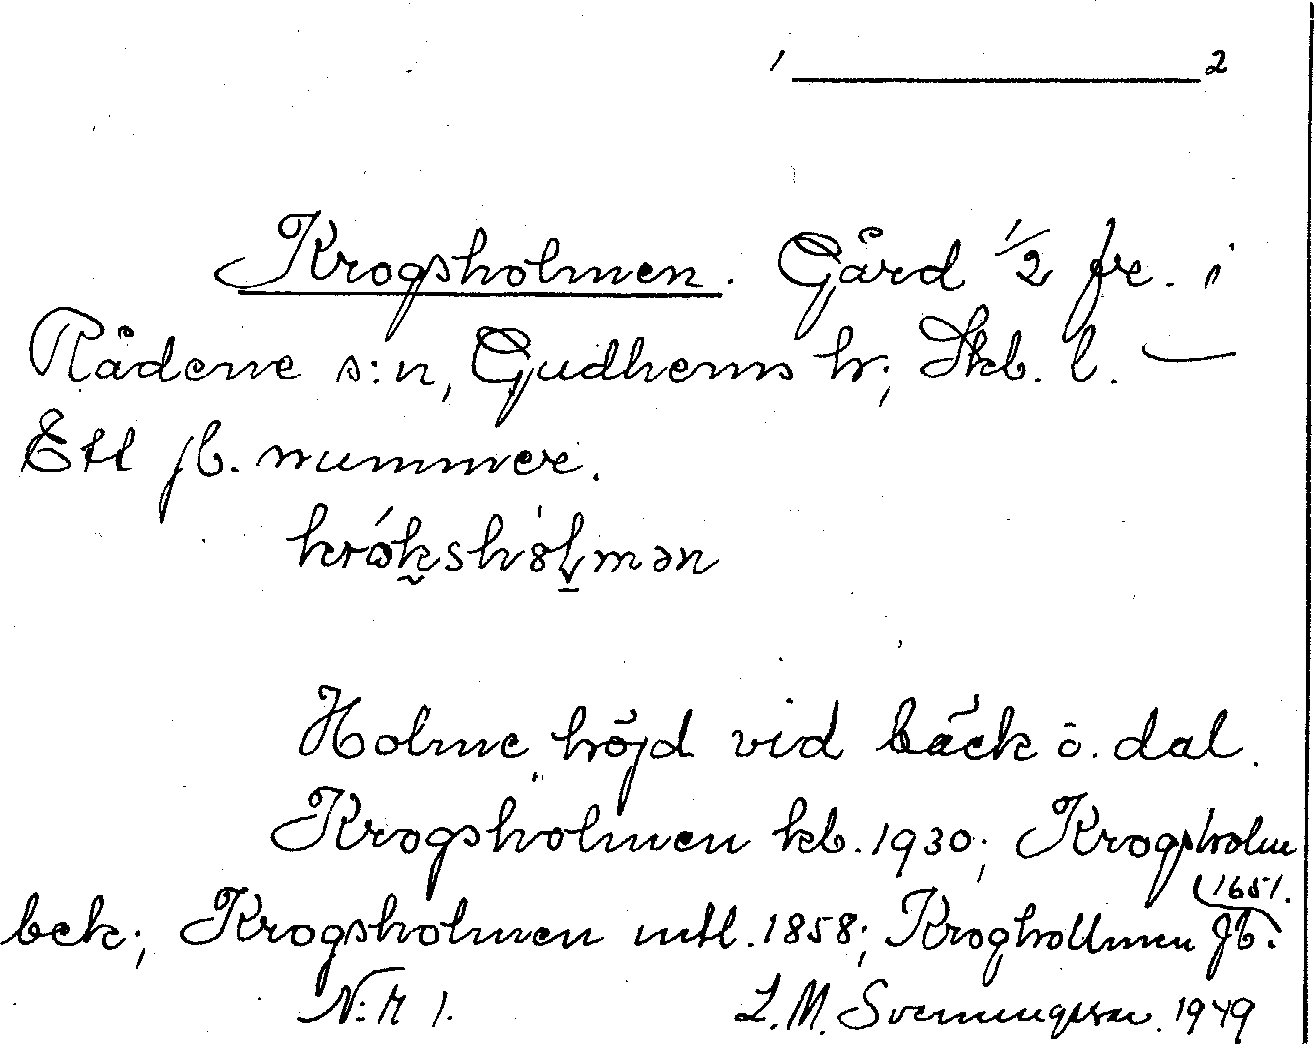 1 2
Krogsholmen. Gård 1/2 fr. i
Rådene s:n, Gudhems hr; Skb. l. —
Ett jb. nummer.
krókshòlmən
Holme, höjd vid bäck o. dal.
Krogsholmen kb. 1930; Krogsholm
bek; Krogsholmen mtl. 1858; Kroghollmen Jb. 1651.
N:r 1. L. M. Svenungsson. 1949